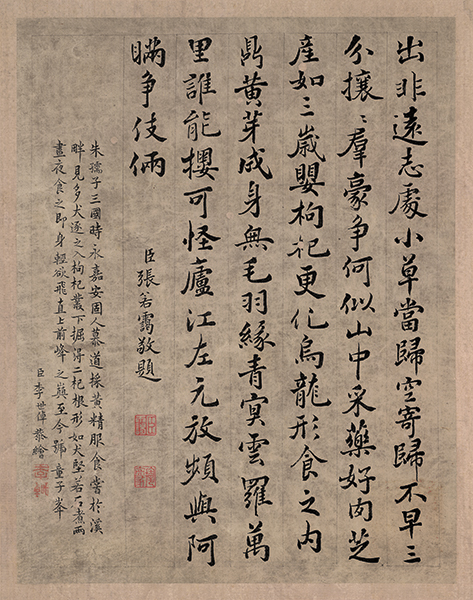 出非遠志處小草當歸空寄歸不早三
分攘〻羣豪争何似山中采藥好肉芝
產如三歲嬰枸杞更化烏龍形食之内
鼎黃芽成身無毛羽緣青冥雲羅萬
里誰能攖可怪廬江左元放頻與阿
瞞争伎倆
臣張若靄敬題
朱孺子三國時永嘉安固人慕道採黃精服食嘗於溪
畔見多犬逐之入枸杞叢下掘得二杞根形如犬堅若石煮兩
晝夜食之即身輕欲飛直上前峰之巔至今號童子峯
臣李世倬恭繪